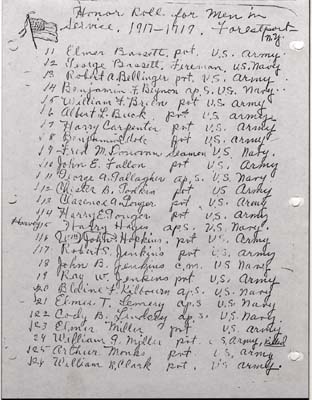 Honor Roll for Men in
Service, 1917-1919. Forestport
N.Y.
11 Elmer Bassett, pvt. U.S. Army.
12 George Brassett, Fireman, U.S. Navy
13 Robert A. Bellinger pvt. U.S. Army.
14 Benjamin F. ap. S. U.S. Navy.
15 William F. Brien pvt U.S. army
16 Albert L. Buck, pvt. U.S. army.
17 Harry Carpenter pvt. U.S. Army.
18 Benjamin Cole pvt U.S. army
19 Fred M. Donovan seamen U.S. Navy.
110 John E. Fallon pvt. U.S. army
111 George A. Gallagher ap. S. U.S. Navy
112 Chester B. pvt US Army
113 Clarence A. Gonger pvt. U.S. Army
114 Harry E. Gonger pvt. U.S. Army
115 Harry Hayes ap. S. U.S. Navy.
116 Wm John Hopkins, pvt U.S. Army
117 Robert S. Jenkins pvt U.S. army
118 John B. Jenkins c.m. U.S Navy
119 Ray W. Jenkins pvt U.S. Army
120 Kilbourn ap. S. U.S. Navy
121 Elmer T. Lemery ap. S U.S. Navy
122 Cody B. Lindsay ap. S. U.S. Navy
123 Elmer Miller pvt U.S. army
24 William G. Miller pvt. U.S. Army, killed
125 Arthur Monks pvt U.S. Army
126 William R. Clark pvt. U.S. army